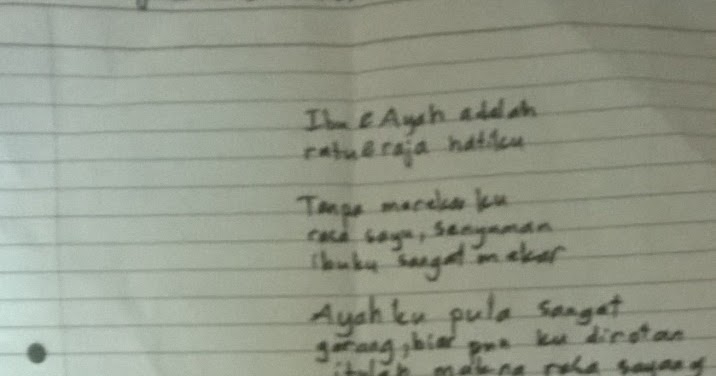 Ibu & Ayah adalah
ratu & raja hatiku
Tanpa mereka ku
rasa sayu, senyuman
ibuku sangat mekar
Ayahku pula sangat
garang, biar pun ku dirotan
itulah makna rasa sayang